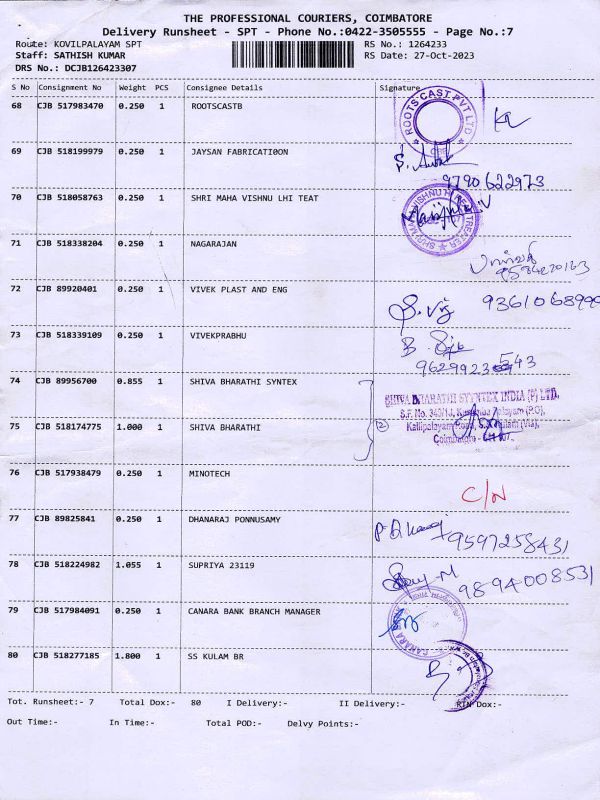 THE PROFESSIONAL COURIERS, COIMBATORE
Delivery Runsheet - SPT - Phone No.:0422-3505555 - Page No.:7
Route: KOVILPALAYAM SPT RS No.: 1264233
Staff: SATHISH KUMAR RS Date: 27-Oct-2023
DRS No.: DCJB126423307
S No Consignment No Weight PCS Consignee Details Signature
68 CJB 517983470 0.250 1 ROOTSCASTB
ROOTS CAST PVT LTD
69 CJB 518199979 0.250 1 JAYSAN FABRICATI0ON
9790622973
70 CJB 518058763 0.250 1 SHRI MAHA VISHNU LHI TEAT
71 CJB 518338204 0.250 1 NAGARAJAN
72 CJB 89920401 0.250 1 VIVEK PLAST AND ENG
73 CJB 518339109 0.250 1 VIVEKPRABHU
74 CJB 89956700 0.855 1 SHIVA BHARATHI SYNTEX
SHIVA BHARATHI SYYNTEX INDIA (P) LTD.
75 CJB 518174775 1.000 1 SHIVA BHARATHI
2
Coimbatore -
76 CJB 517938479 0.250 1 MINOTECH
C/N
77 CJB 89825841 0.250 1 DHANARAJ PONNUSAMY
9597258431
78 CJB 518224982 1.055 1 SUPRIYA 23119
9894008531
79 CJB 517984091 0.250 1 CANARA BANK BRANCH MANAGER
CANARA
80 CJB 518277185 1.800 1 SS KULAM BR
Tot. Runsheet:- 7 Total Dox:- 80 I Delivery:- II Delivery:- RTN Dox:-
Out Time:- In Time:- Total POD:- Delvy Points:-